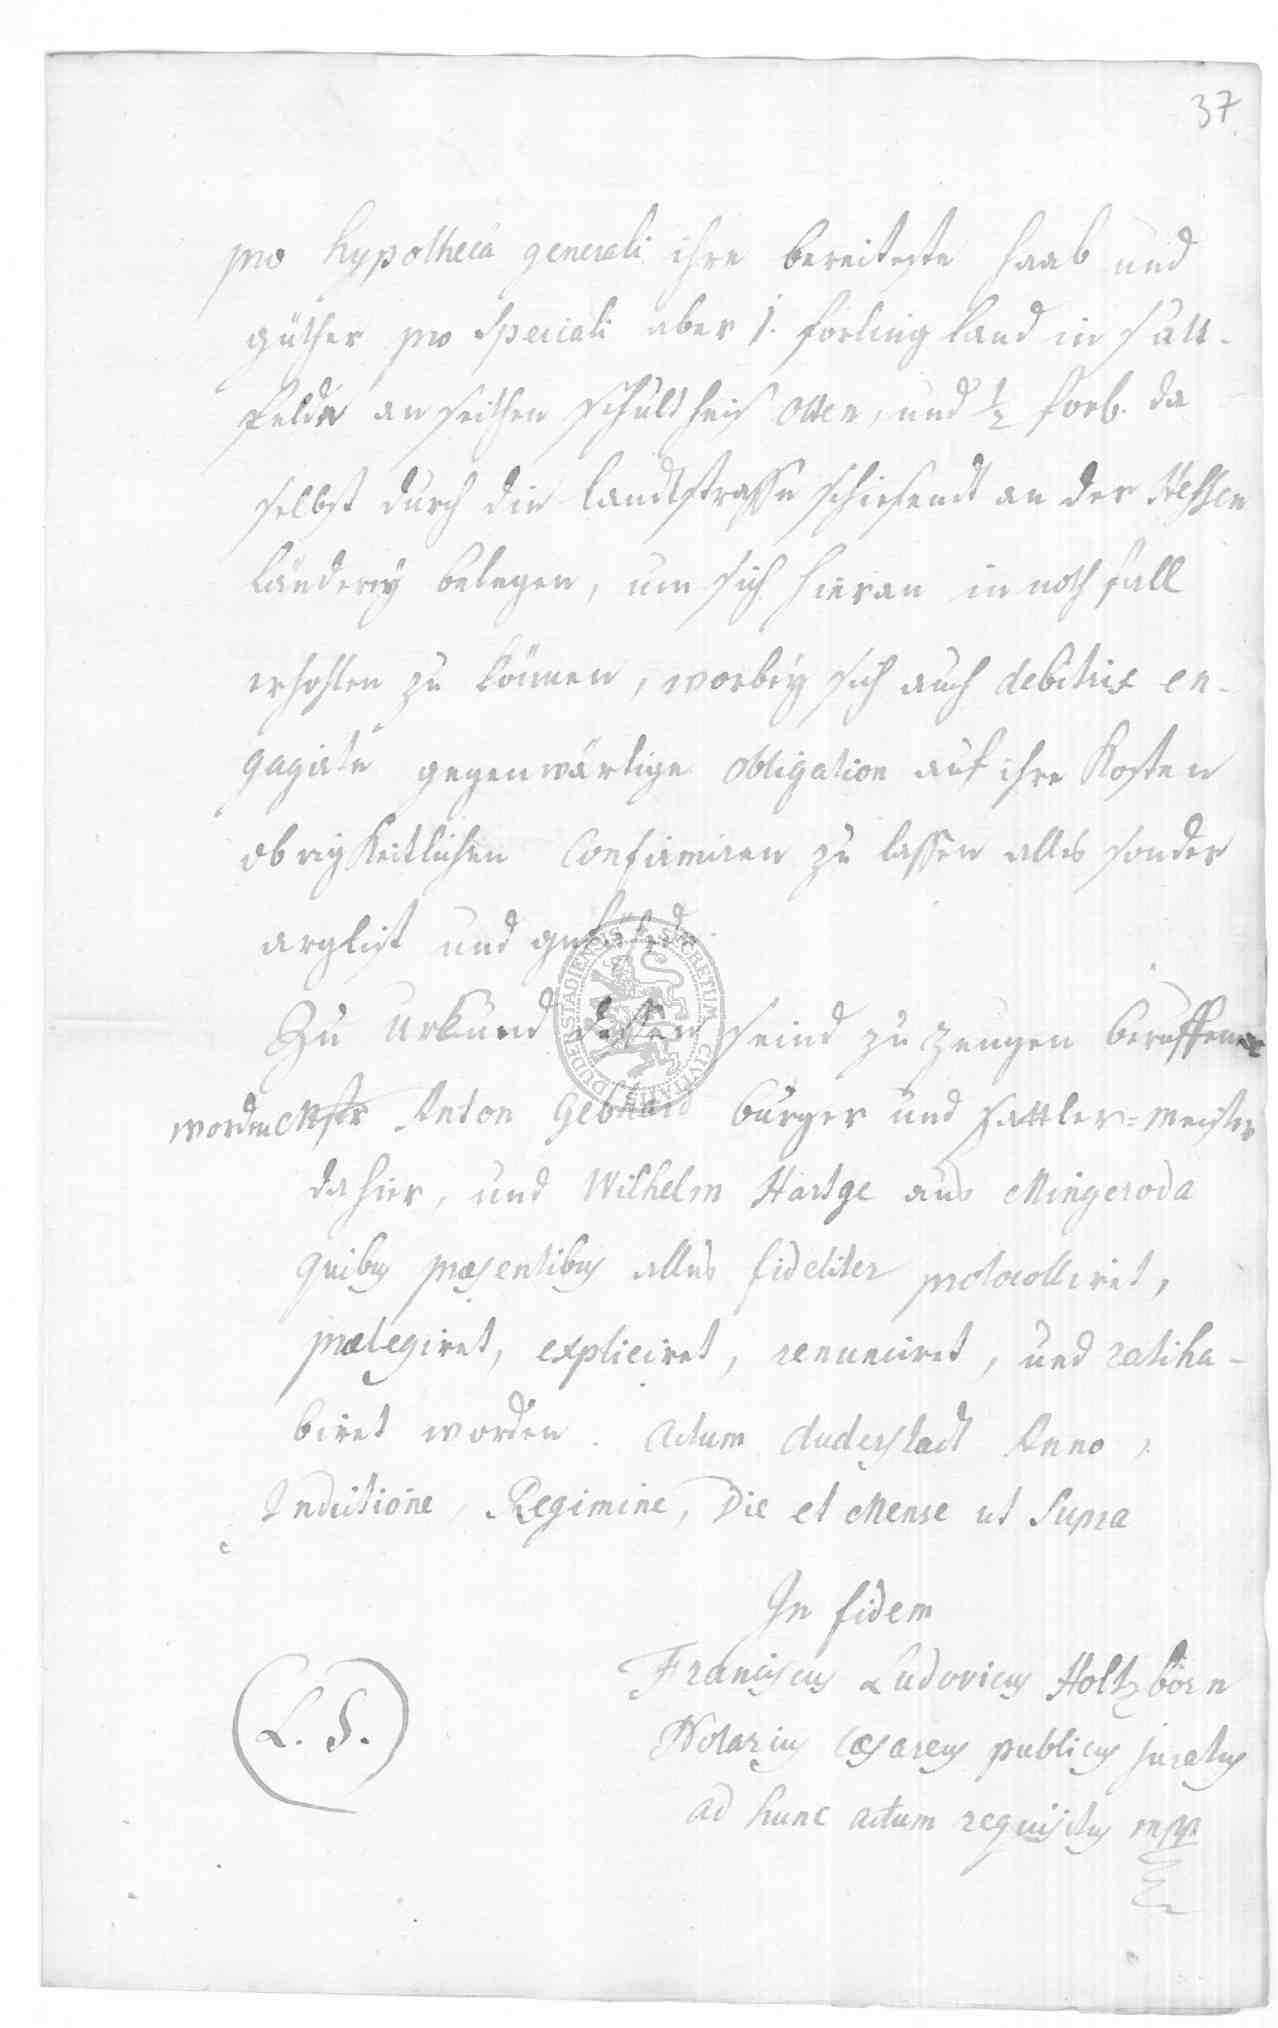 37.
pro hypotheca generali ihre bereiteste Haab und
güther pro speciali aber 1. forling land in
felde an seithen schultheis Otten, und ½ forl. da
selbst durch die landtstrasse schiesendt an der
länderey belegen, um sich hieran in noth fall
erhohlen zu können, worbey sich auch debitrix en-
gagirte gegenwärtige obligation auf ihre Kosten
obrigkeitlichen confirmiren zu lassen alles sonder
arglist und gefährde.
Zu Urkund dessen seind zu zeugen beruffen
worden Mstr Anton Gebhard bürger und Sattler=meister
dahier, und Wilhelm Hartge aus Mingeroda
quibus præsentibus alles fideliter protocolliret,
prælegiret, expliciret, renunciret, und ratiha-
biret worden. Actum duderstadt Anno,
Indictione, Regimine, Die et Mense ut Supra
In fidem
Franciscus Ludovicus Holtzborn
Notarius Cæsareus publicus juratus
ad hunc actum requisitus mpp
L. S.
DUDERSTADIENSIS SECRETUM CIVITATIS